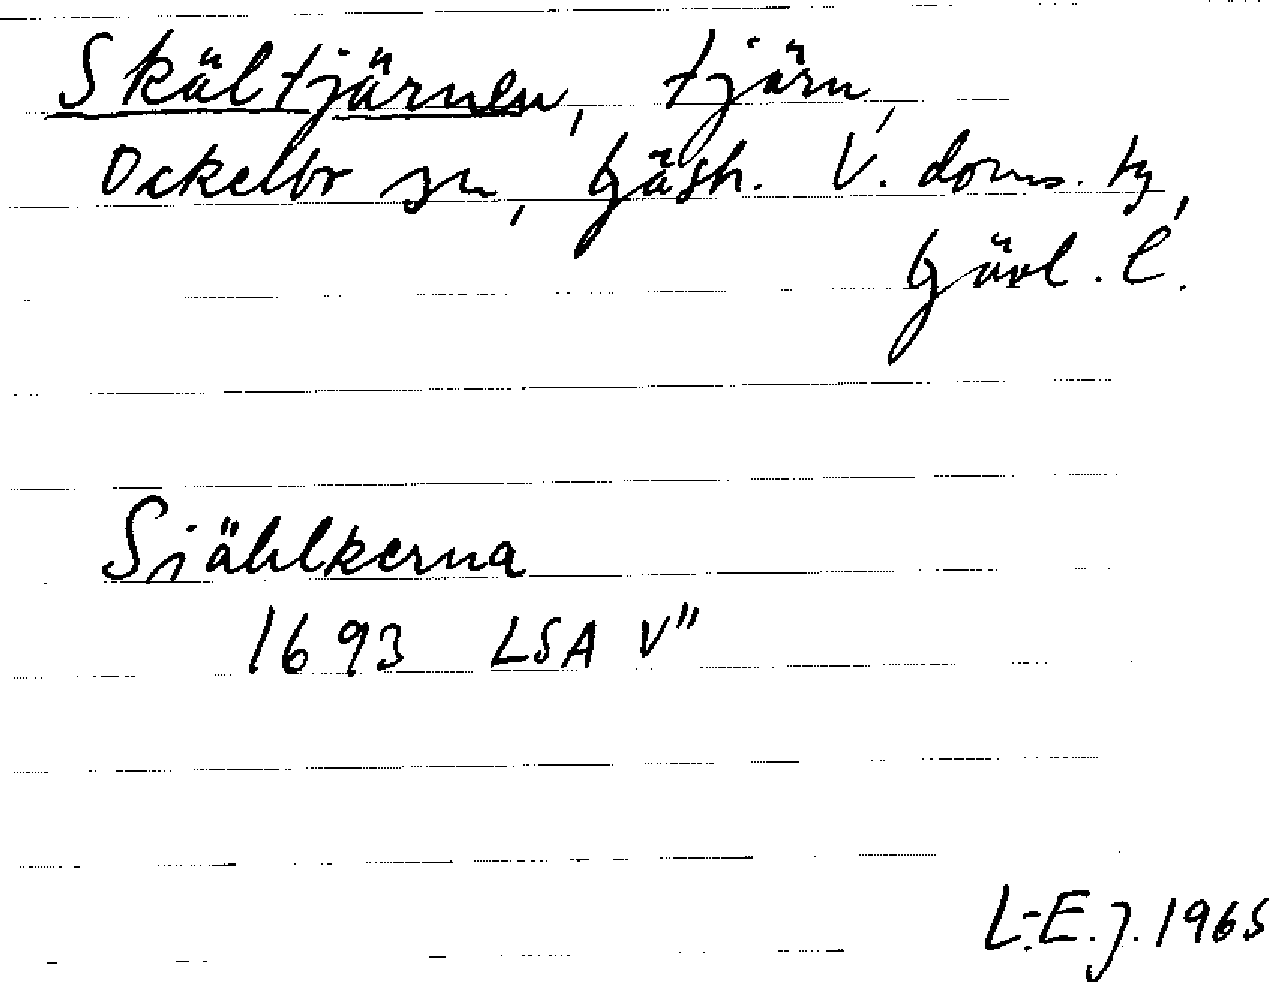 Skältjärnen, tjärn,
Ockelbo sn, Gästr. V. doms. tg,
Gävl. l.
Siählkerna
1693 LSA V"
L-E. J. 1965